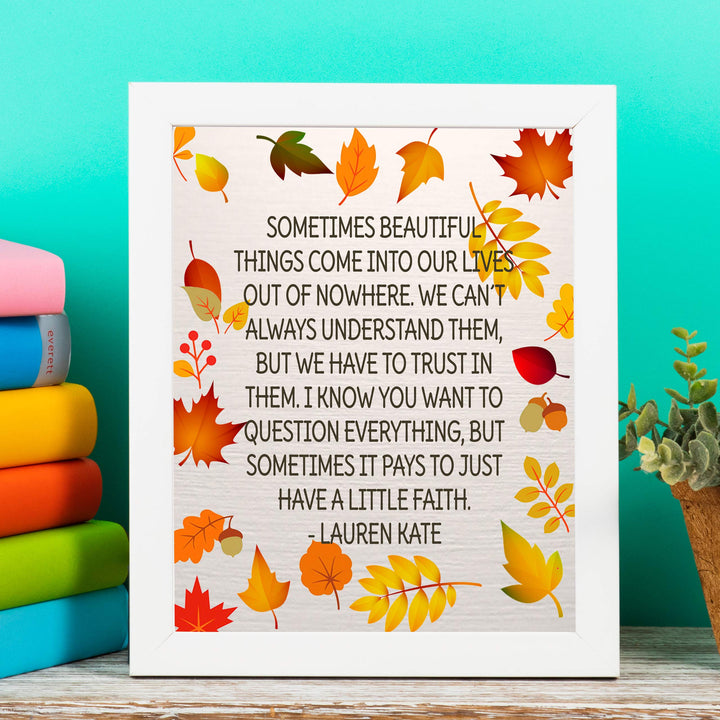 SOMETIMES BEAUTIFUL
THINGS COME INTO OUR LIVES
OUT OF NOWHERE. WE CAN'T
ALWAYS UNDERSTAND THEM,
BUT WE HAVE TO TRUST IN
THEM. I KNOW YOU WANT TO
QUESTION EVERYTHING, BUT
SOMETIMES IT PAYS TO JUST
HAVE A LITTLE FAITH.
- LAUREN KATE
everett